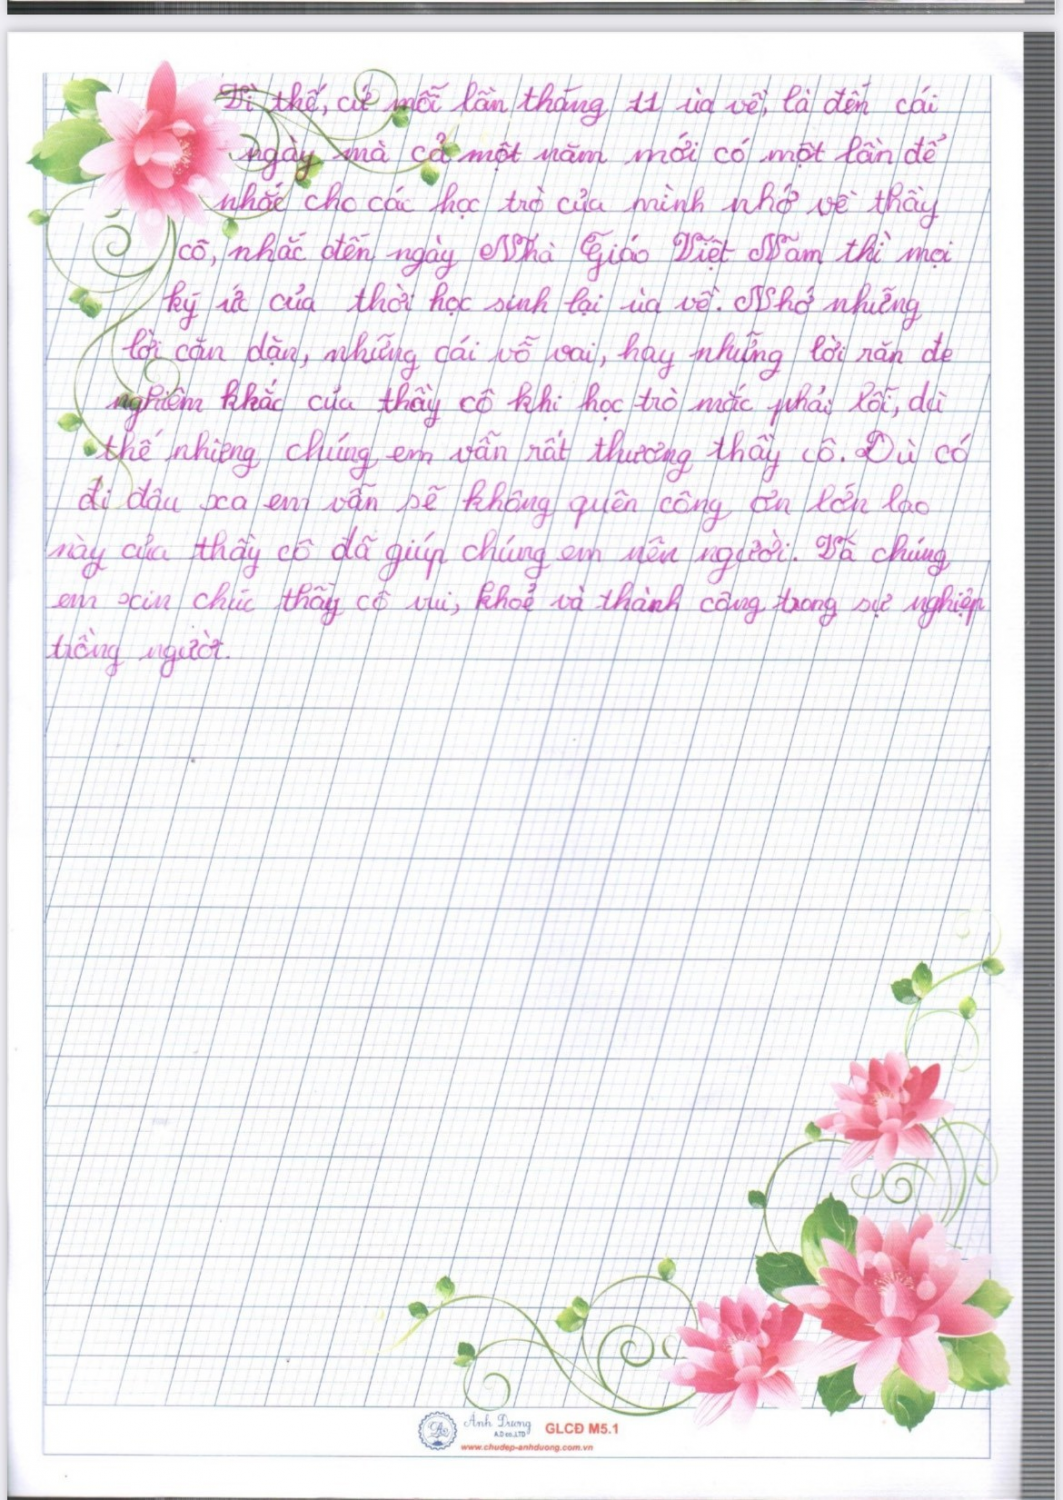 Vì thế, cứ mỗi lần tháng 11 ùa về, là đến cái
ngày mà cả một năm mới có một lần để
nhắc cho các học trò của mình nhớ về thầy
cô, nhắc đến ngày Nhà Giáo Việt Nam thì mọi
ký ức của thời học sinh lại ùa về. Nhớ những
lời căn dặn, những cái vỗ vai, hay những lời răn đe
nghiêm khắc của thầy cô khi học trò mắc phải lỗi, dù
thế nhiêng chúng em vẫn rất thương thầy cô. Dù có
đi đâu xa em vẫn sẽ không quên công ơn lớn lao
này của thầy cô đã giúp chúng em nên người. Và chúng
em xin chúc thầy cô vui, khoẻ và thành công trong sự nghiệp
trồng người.
Ánh Dương
A.D co.,LTD
GLCĐ M5.1
www.chudep-anhduong.com.vn